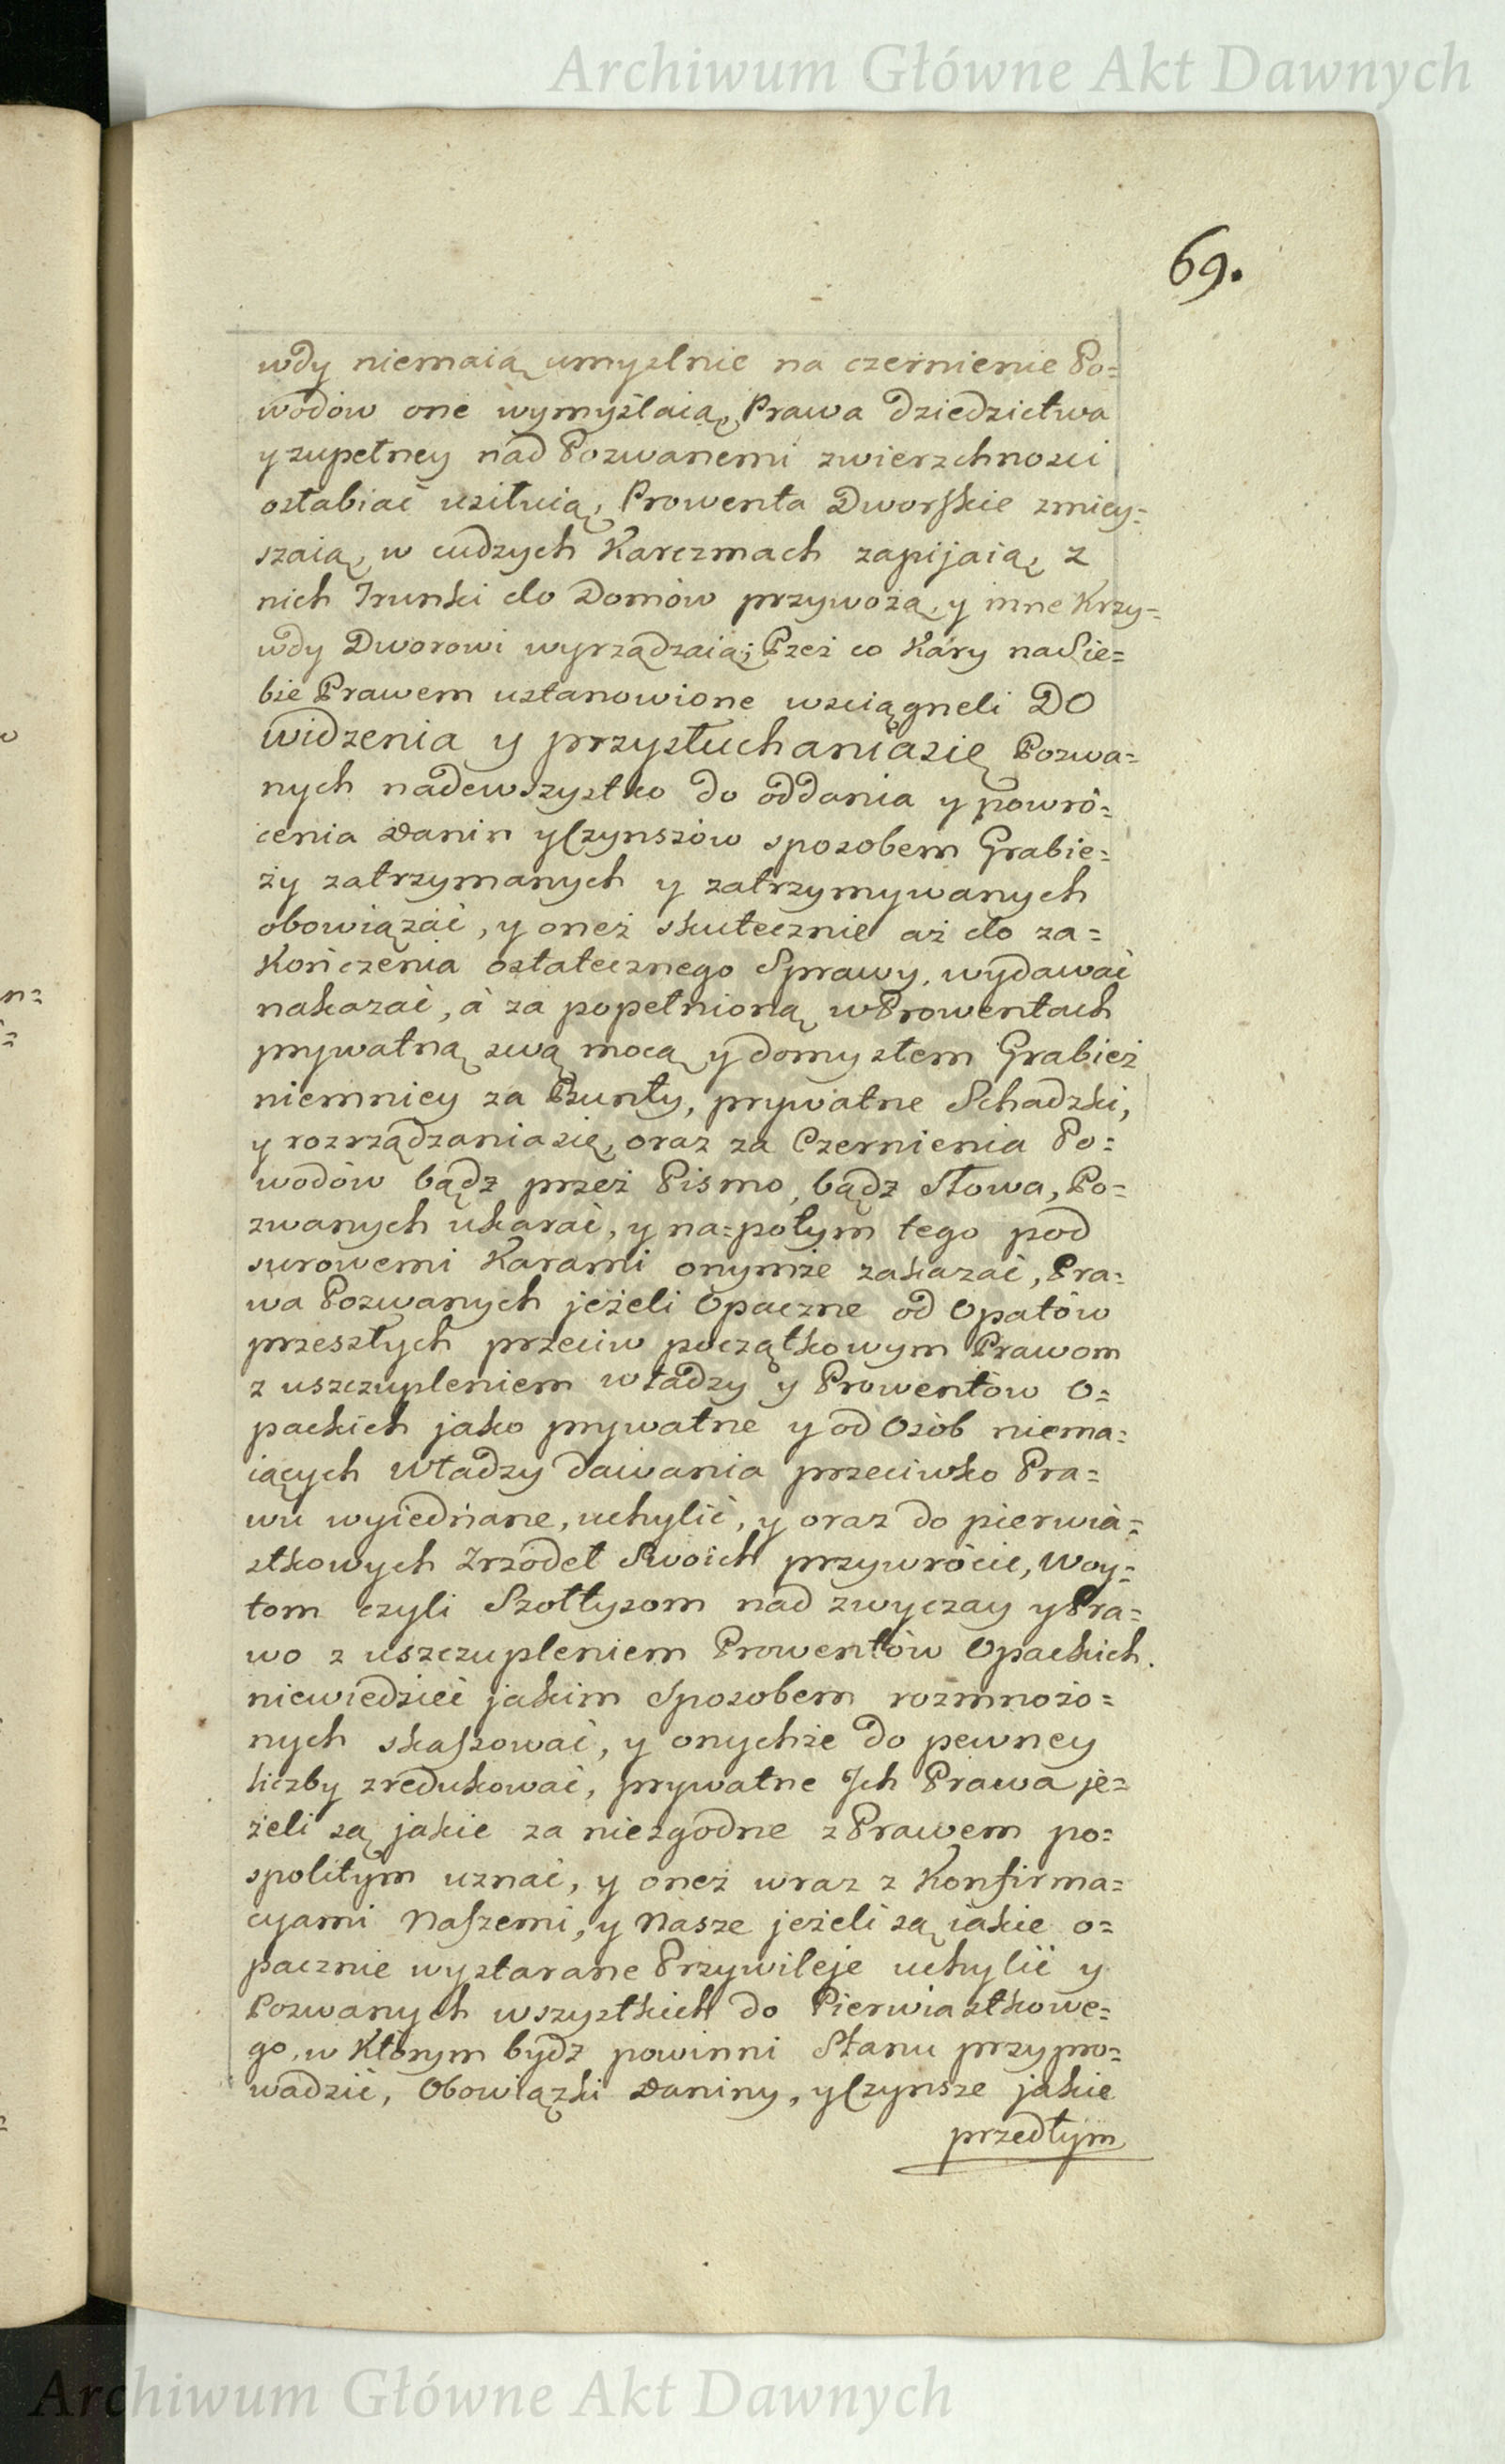 Archiwum Główne Akt Dawnych
69.
wdy niemaią umyslnie na czernienie Po=
wodow one wymyślaią, Prawa dziedzictwa
y zupełney nad Pozwanemi zwierzchnosci
osłabiać usiłuią, Prowenta Dworskie zmiey=
szaią, w cudzych Karczmach zapijaią, z
nich Trunki do Domów przywożą, y inne Krzy=
wdy Dworowi wyrządzaią; Przez co Káry na Sie=
bie Prawem ustanowione wsciągneli DO
widzenia y przysłuchaniasię Pozwa=
nych nadewszystko do oddania y powró=
cenia Danin y Czynszów sposobem Grabie=
ży zatrzymanych y zatrzymywanych
obowiązać, y oneż skutecznie aż do za=
kończenia ostatecznego Sprawy, wydawać
nakazać, à za popełnioną w Prowentach
prywatną swą mocą y domysłem Grabież
niemniey za Bunty, prywatne Schadzki,
y rozrządzaniasię, oraz za Czernienia Po=
wodów bądz przez Pismo, bądz Słowa, Po=
zwanych ukarać, y na=potym tego pod
surowemi Karami onymże zakazać, Pra=
wa Pozwanych jeżeli Opaczne od Opatów
przeszłych przeciw początkowym Prawom
z uszczupleniem władzy y Prowentów O=
packich jako prywatne y od Osób niema=
iących Władzy dawania przeciwko Pra=
wu wyiednane, uchylić, y oraz do pierwia=
stkowych Zrzodeł Swoich przywrócić, Woy=
tom czyli Szołtysom nad zwyczay y Pra=
wo z uszczupleniem Prowentów Opackich
niewiedzieć jakim sposobem rozmnożo=
nych skaszować, y onychże do pewney
liczby zredukować, prywatne Ich Prawa je=
żeli są jakie za niezgodne z Prawem po=
spolitym uznać, y oneż wraz z Konfirma=
cyami Naszemi, y Nasze jeżeli są iakie o=
pacznie wystarane Przywileje uchylić y
Pozwanych wszystkich do Pierwiastkowe=
go, w Którym bydz powinni Stanu przypro=
wadzić, Obowiązki Daniny, y Czynsze jakie
przedtym
Archiwum Główne Akt Dawnych